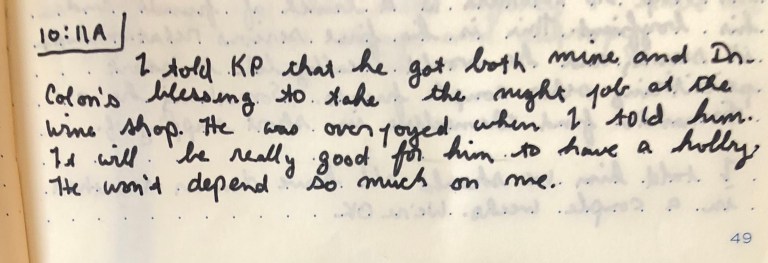 10:11A
I told KP that he got both mine and Dr.
Colon's blessing to take the night job at the
wine shop. He was overjoyed when I told him.
It will be really good for him to have a hobby.
He won't depend so much on me.
49